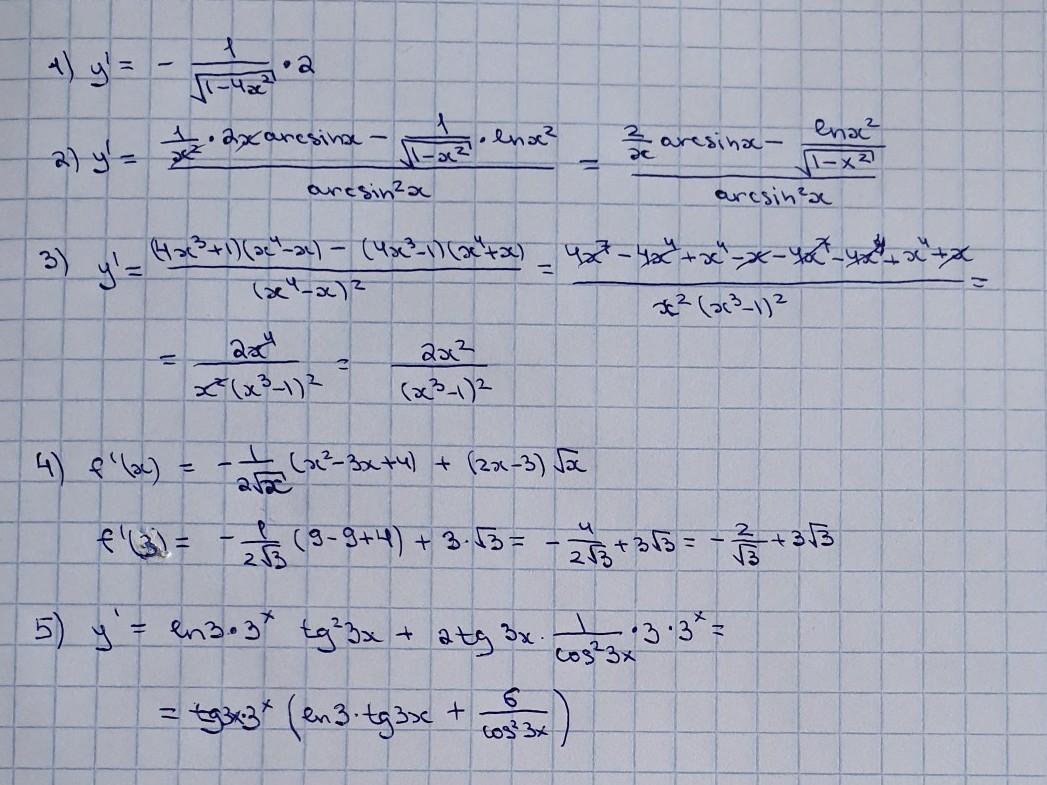 1) y' = - 1/√(1-4x²) · 2
2) y' = (1/x² · 2x arcsinx - 1/√(1-x²) · lnx²)/(arcsin²x) = (2/x arcsinx - lnx²/√(1-x²))/(arcsin²x)
3) y' = ((4x³+1)(x⁴-x) - (4x³-1)(x⁴+x))/((x⁴-x)²) = (4x⁷ - 4x⁴ + x⁴ - x - 4x⁷ - 4x⁴ + x⁴ + x)/(x²(x³-1)²) =
= 2x⁴/(x²(x³-1)²) = 2x²/((x³-1)²)
4) f'(x) = - 1/(2√x) (x²-3x+4) + (2x-3) √x
f'(3) = - 1/(2√3) (9-9+4) + 3·√3 = - 4/(2√3) + 3√3 = - 2/√3 + 3√3
5) y' = ln3·3ˣ tg²3x + 2tg 3x · 1/(cos²3x) · 3 · 3ˣ =
= tg3x·3ˣ (ln3·tg3x + 6/(cos²3x))